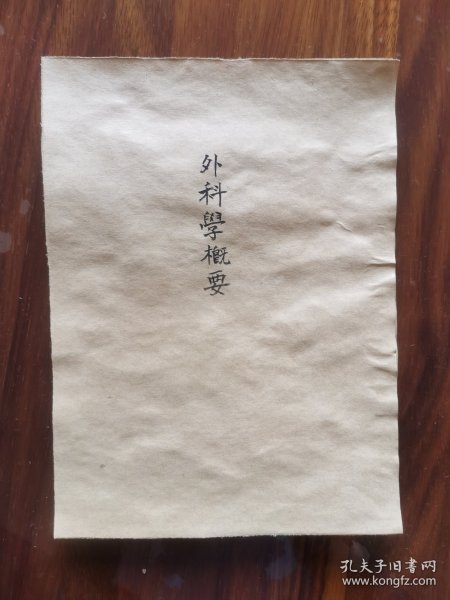 外科學概要
孔夫子旧书网
www.kongfz.com